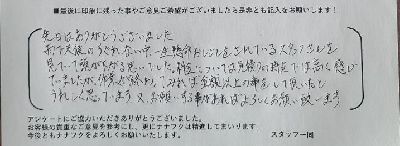 ■最後に印象に残った事やご意見ご希望がございましたら是非ともご記入をお願いします!
先日はありがとうございました
雨で天候のすぐれない中一生懸命おしごとをされているスタッフさんを
見ていて頭が下がる思いでした。料金については見積りの時点では高く感じ
ていましたが、作業が終わってみれば金額以上の事をして頂いたと
うれしく思っています。又、お願いする事があればよろしくお願い致します
アンケートにご協力いただきありがとうございました。
お客様の貴重なご意見を参考にし、更にナナフクは精進してまいります
今後ともナナフクをよろしくお願いいたします。 スタッフ一同